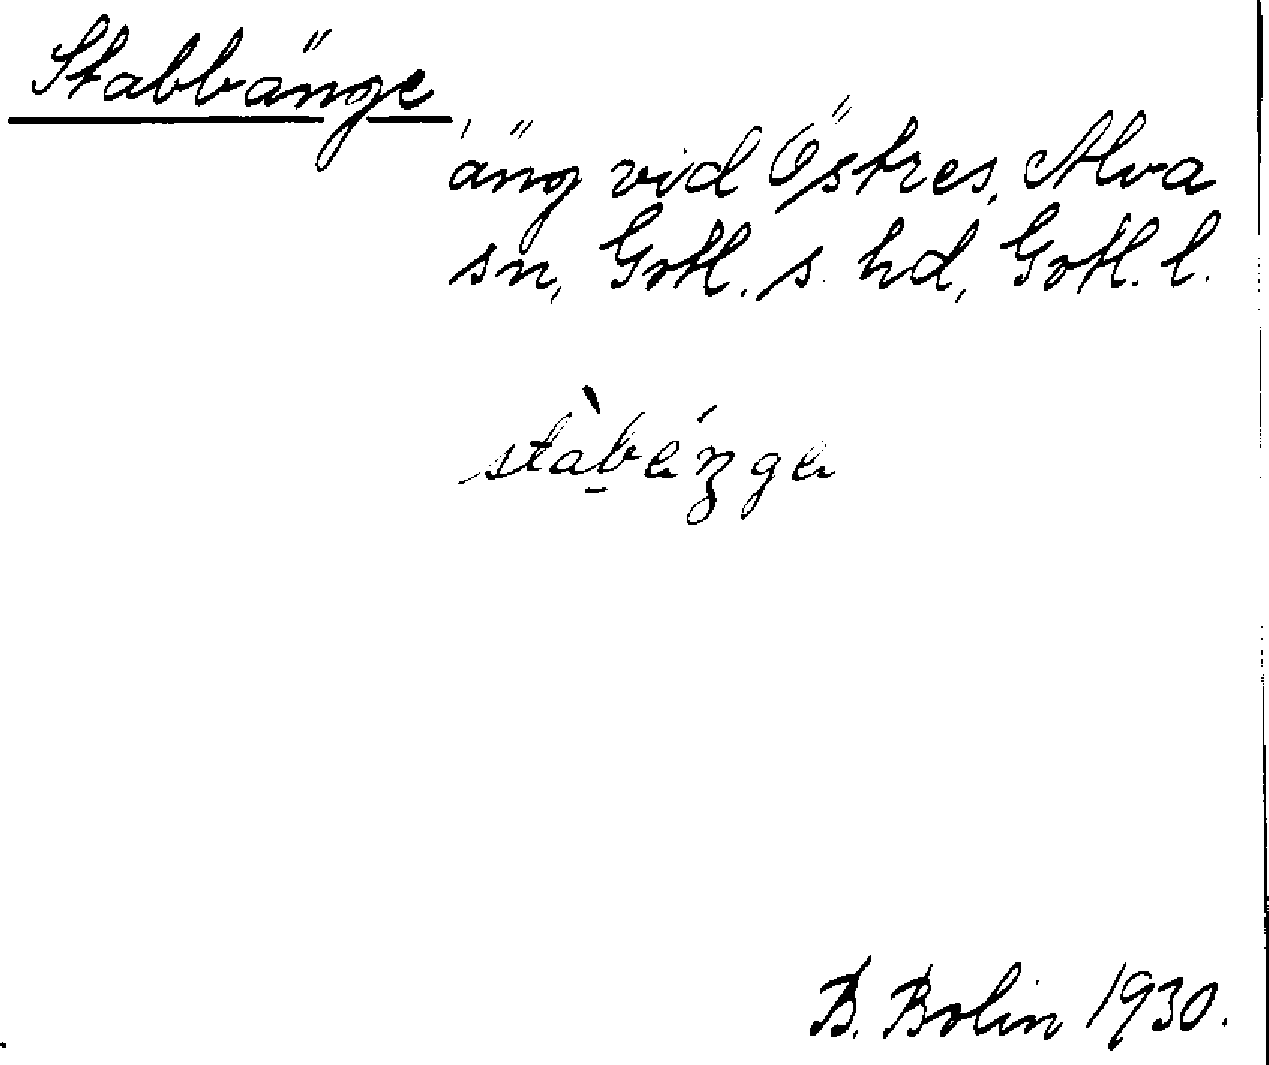 Stabbänge
äng vid Östres, Alva
sn, Gotl. s. hd, Gotl. l.
stàb̠éŋge
B. Bolin 1930.